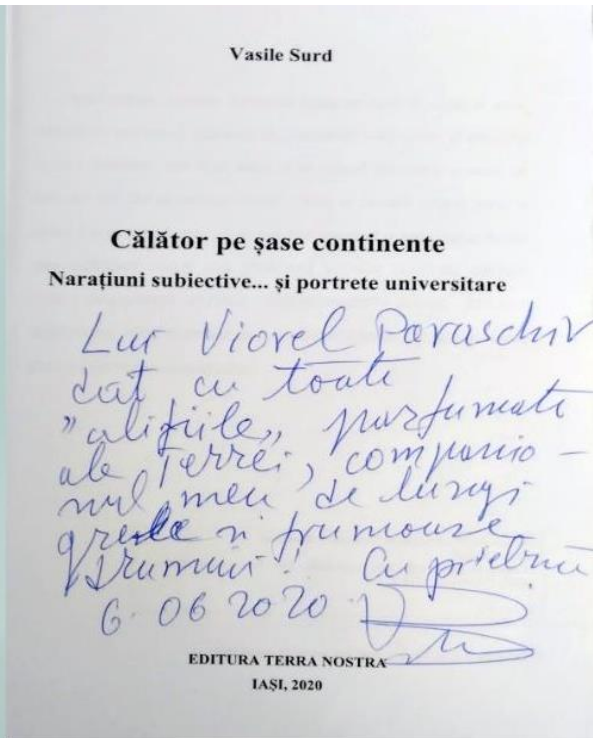 Vasile Surd
Călător pe șase continente
Narațiuni subiective... și portrete universitare
Lui Viorel Paraschiv
dat cu toate
"alifiile„ parfumate
ale Terrei, companio-
nul meu de lungi
grele și frumoase
drumuri! Cu prietenie
6. 06 2020
EDITURA TERRA NOSTRA
IAȘI, 2020